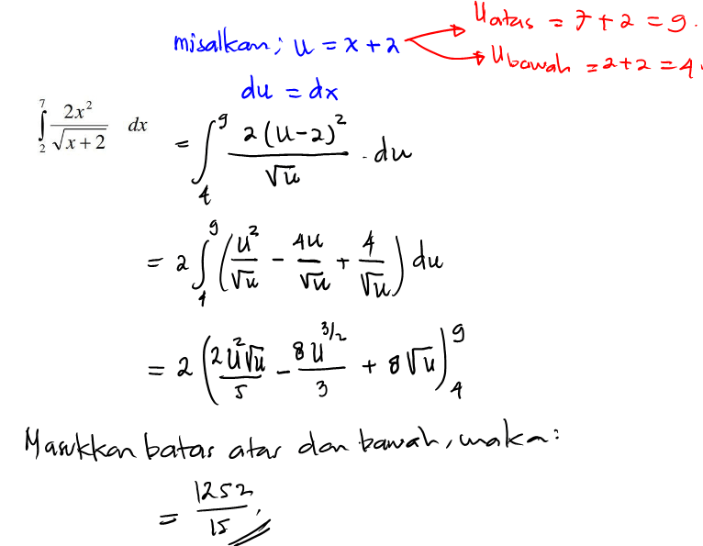 misalkan; u = x + 2
u atas = 7 + 2 = 9.
u bawah = 2 + 2 = 4.
du = dx
∫₂⁷ 2x²/√(x+2) dx = ∫₄⁹ 2(u-2)²/√u . du
= 2 ∫₄⁹ (u²/√u - 4u/√u + 4/√u) du
= 2 (2u²√u/5 - 8u^(3/2)/3 + 8√u)₄⁹
Masukkan batas atas dan bawah, maka:
= 1252/15